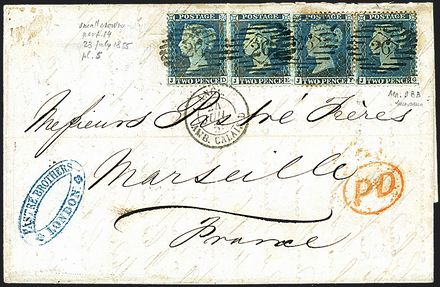 small crown
perf. 14
23 July 1855
pl. 5
POSTAGE POSTAGE POSTAGE POSTAGE
TWO PENCE TWO PENCE TWO PENCE TWO PENCE
Messieurs Pastré Frères
Marseille
France
PASTRE BROTHERS
LONDON
PD
AMB. CALAIS